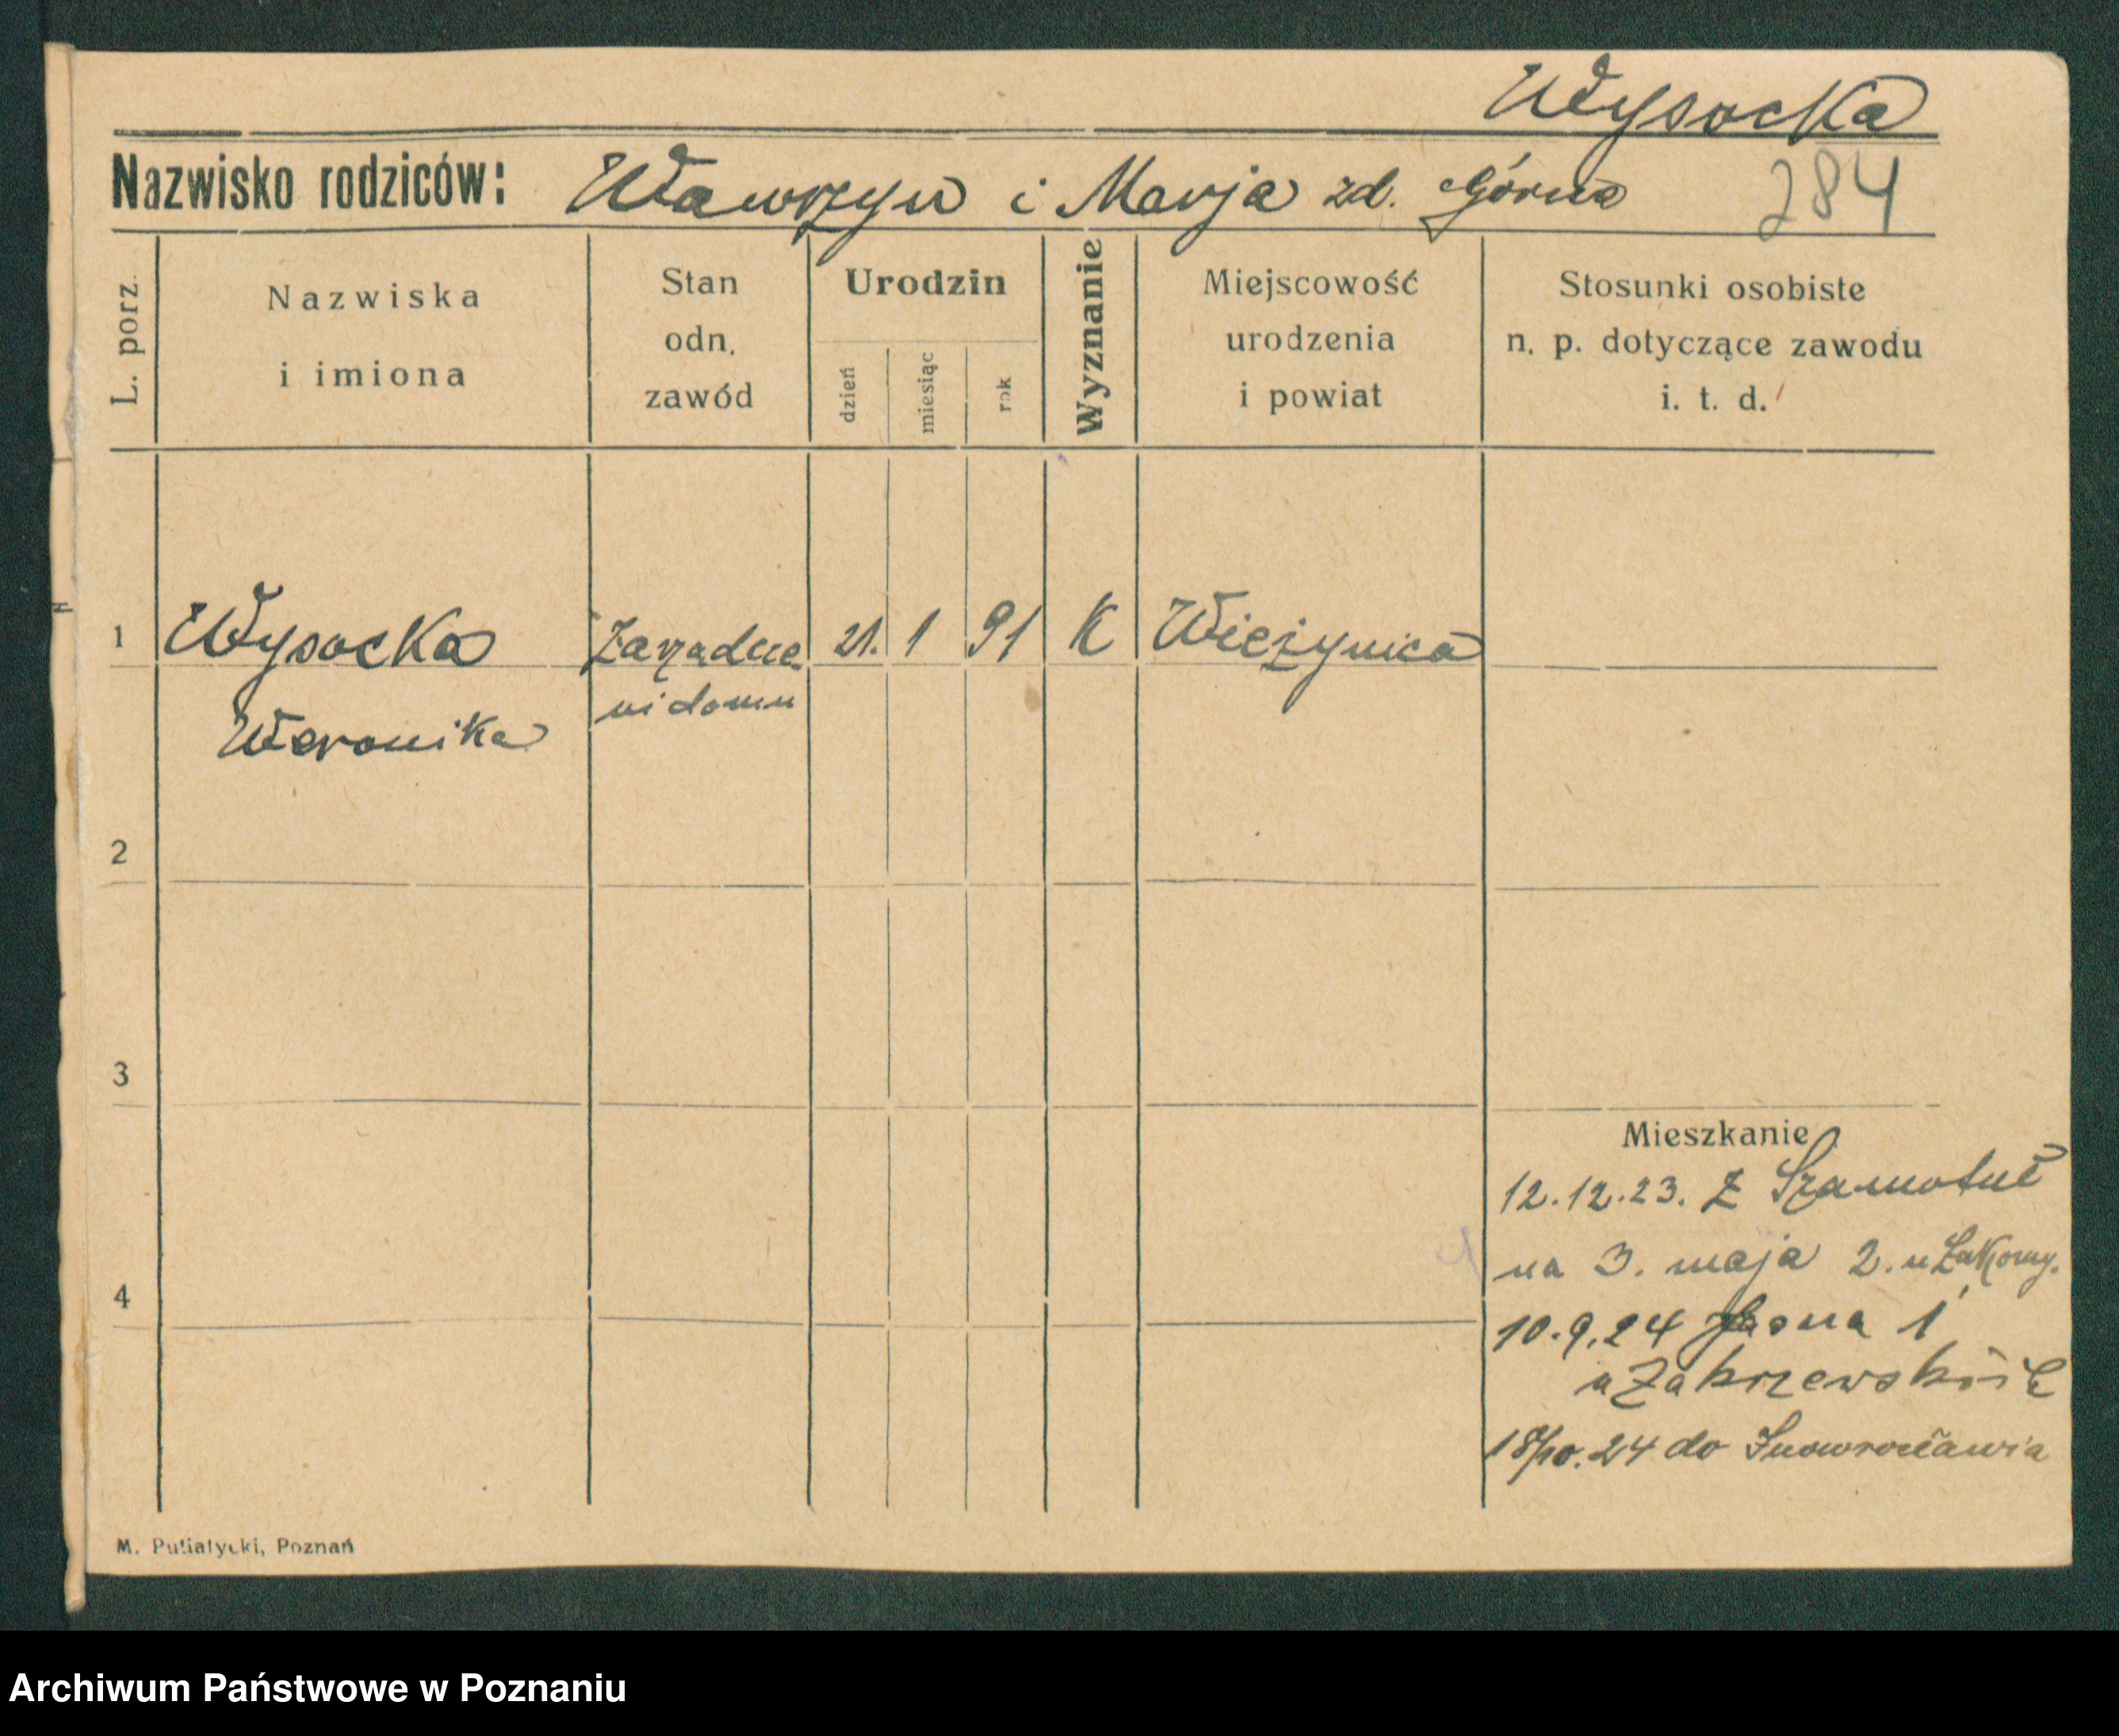 Wysocka
Nazwisko rodziców: Wawrzyn i Marja zd. Górna 284
L. porz. Nazwiska i imiona Stan odn. zawód Urodzin dzień miesiąc rok Wyznanie Miejscowość urodzenia i powiat Stosunki osobiste n. p. dotyczące zawodu i. t. d.
1 Wysocka Zarządcz. 21. 1 91 K Wieżynica
ni domu
Weronika
2
3
Mieszkanie
12.12.23. z Szamotuł
na 3. maja 2. u
4
10.9.24 Jasna 1
u Zakrzewskich
18/10.24 do Inowrocławia
M. Putiatycki, Poznań
Archiwum Państwowe w Poznaniu